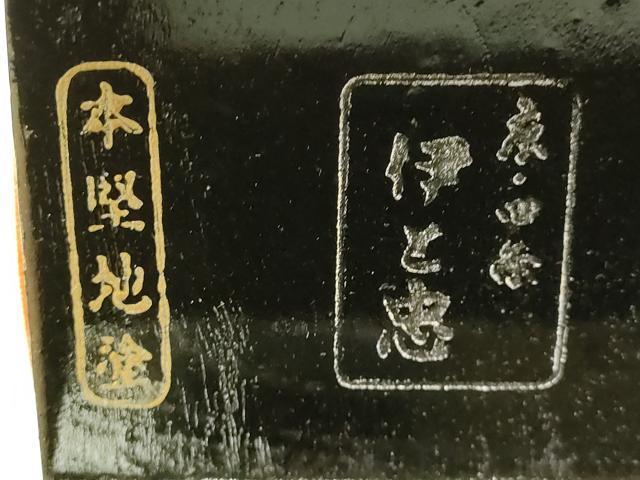 京・四条
伊と忠
本堅地塗